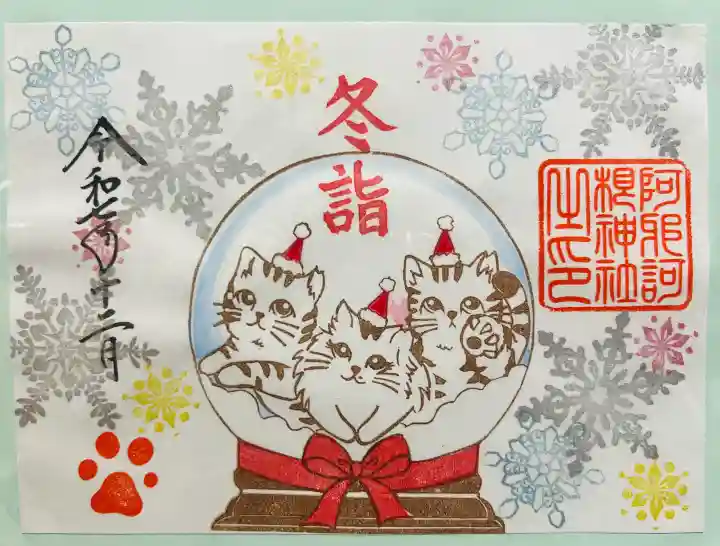 冬詣
阿邪訶
根神社
之印
令和七年十二月